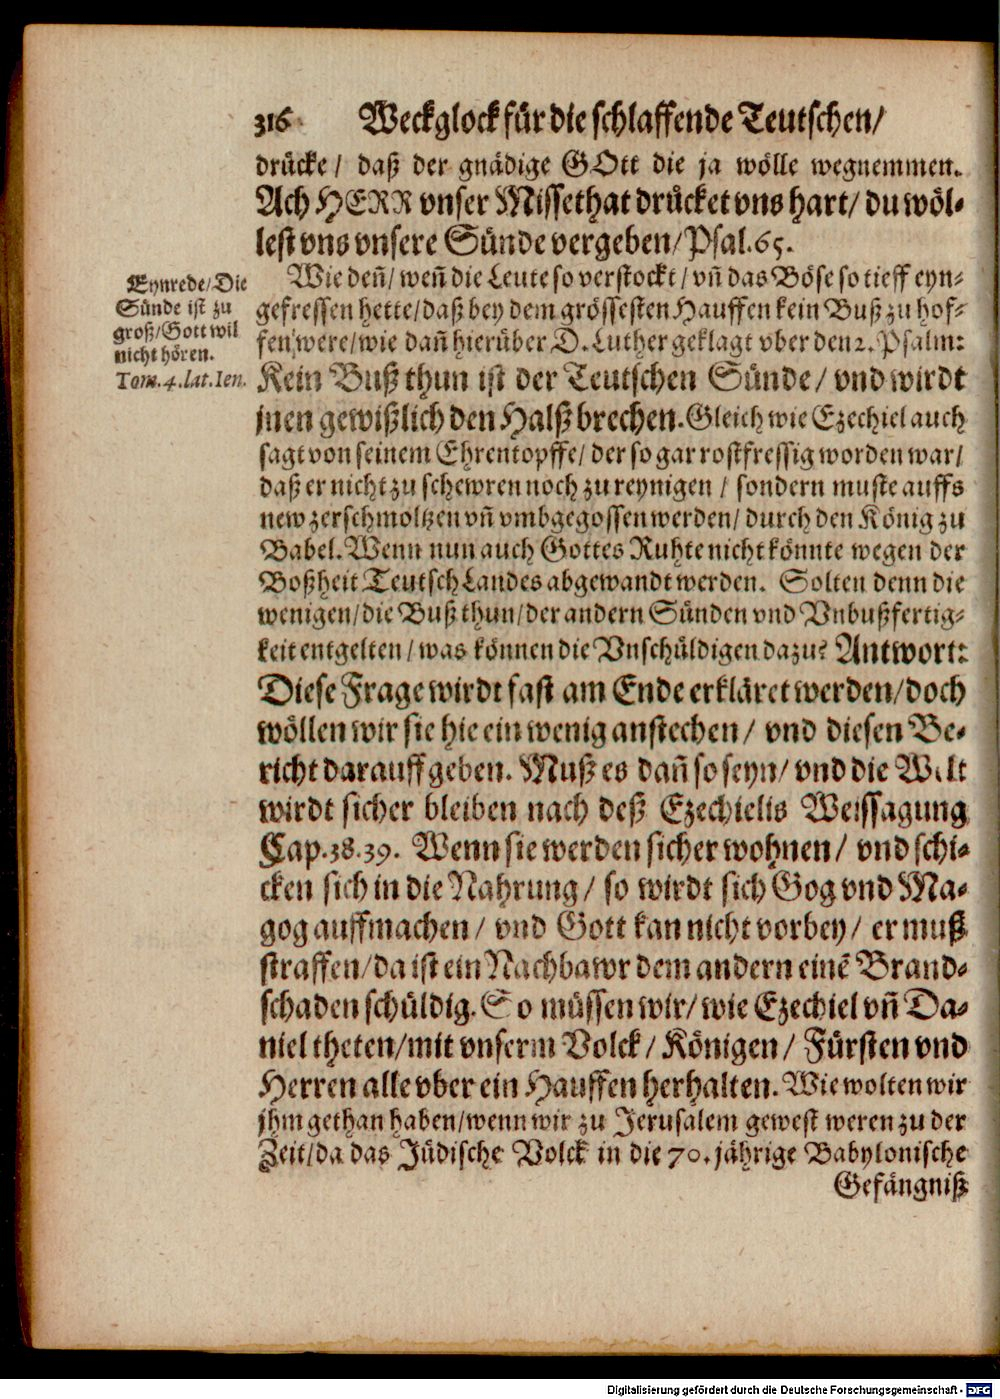 316 Weckglock für die schlaffende Teutschen/
drücke/ daß der gnädige GOtt die ja wölle wegnemmen.
Ach HERR vnser Missethat drücket vns hart/ du wöl-
lest vns vnsere Sünde vergeben/ Psal.65.
Eynrede/Die
Sünde ist zu
groß/Gott wil
nicht hören.
Tom.4.lat.Ien.
Wie deñ/ weñ die Leute so verstockt/ vñ das Böse so tieff eyn-
gefressen hette/ daß bey dem grössesten Hauffen kein Buß zu hof-
fen were/ wie dañ hierüber D. Luther geklagt vber den 2. Psalm:
Kein Buß thun ist der Teutschen Sünde/ vnd wirdt
jnen gewißlich den Halß brechen. Gleich wie Ezechiel auch
sagt von seinem Ehrentopffe/ der so gar rostfressig worden war/
daß er nicht zu schewren noch zu reynigen/ sondern muste auffs
new zerschmoltzen vñ vmbgegossen werden/ durch den König zu
Babel. Wenn nun auch Gottes Ruhte nicht könnte wegen der
Boßheit Teutsch Landes abgewandt werden. Solten denn die
wenigen/ die Buß thun/ der andern Sünden vnd Vnbußfertig-
keit entgelten/ was können die Vnschüldigen dazu? Antwort:
Diese Frage wirdt fast am Ende erkläret werden/ doch
wöllen wir sie hie ein wenig anstechen/ vnd diesen Be-
richt darauff geben. Muß es dañ so seyn/ vnd die Welt
wirdt sicher bleiben nach deß Ezechielis Weissagung
Cap.38.39. Wenn sie werden sicher wohnen/ vnd schi-
cken sich in die Nahrung/ so wirdt sich Gog vnd Ma-
gog auffmachen/ vnd Gott kan nicht vorbey/ er muß
straffen/ da ist ein Nachbawr dem andern einẽ Brand-
schaden schüldig. So müssen wir/ wie Ezechiel vñ Da-
niel theten/ mit vnserm Volck/ Königen/ Fürsten vnd
Herren alle vber ein Hauffen herhalten. Wie wolten wir
jhm gethan haben/ wenn wir zu Jerusalem gewest weren zu der
Zeit/ da das Jüdische Volck in die 70. jährige Babylonische
Gefängniß
Digitalisierung gefördert durch die Deutsche Forschungsgemeinschaft - DFG